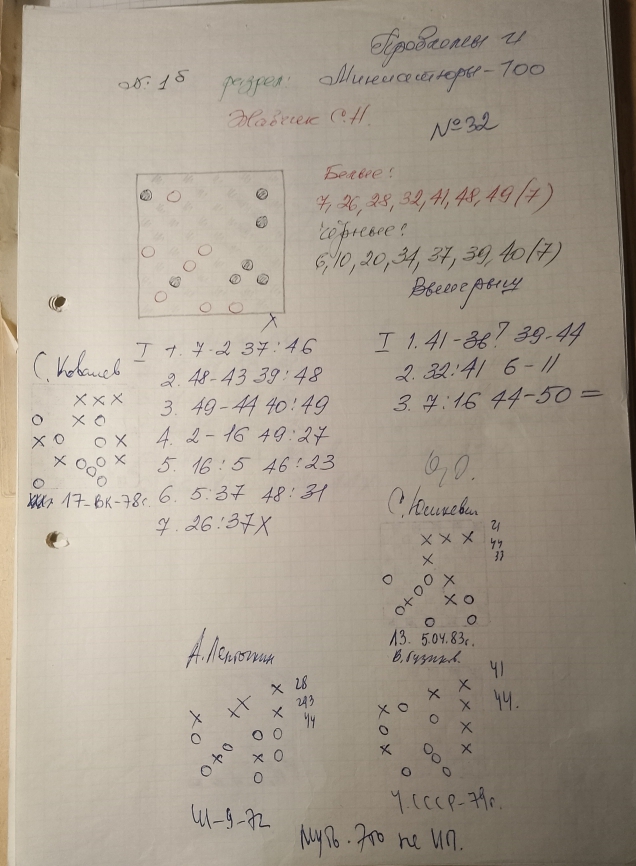 Проблемы и
№ 1б раздел: Миниатюры-100
Жавнек С.Н.
№32
Белые:
7, 26, 28, 32, 41, 48, 49 (7)
Чёрные:
6, 10, 20, 34, 37, 39, 40 (7)
Выигрыш
X
I 1. 7-2 37:46
2. 48-43 39:48
3. 49-44 40:49
4. 2-16 49:27
5. 16:5 46:23
6. 5:37 48:31
7. 26:37 X
I 1. 41-36? 39-44
2. 32:41 6-11
3. 7:16 44-50 =
С. Ковалев
17-ВК-78г.
С. Юшкевич
21
44
33
13. 5.04.83г.
В. Гузиков.
41
44.
Ч. СССР-79г.
28
293
44
Ш-9-72
Муть. Это не ИП.